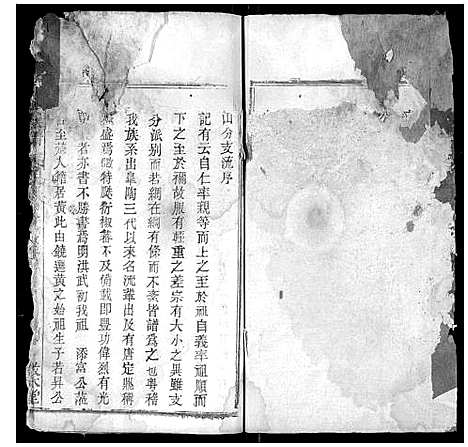 山分支流序
記有云自仁率親等而上之至於祖自義率祖順而
下之至於禰故服有輕重之差宗有大小之異雖支
分派別而若綱在綱有條而不紊皆譜為之也粵稽
我族系出皐陶三代以來名流輩出及有唐定鼎稱
盛焉儆特颷衍椒蕃不及備載即豐功偉烈有光
者亦書不勝書焉明洪武初我祖 添富公
至 人籍居黃此由饒遷黃之始祖生子若昇公
敦本堂